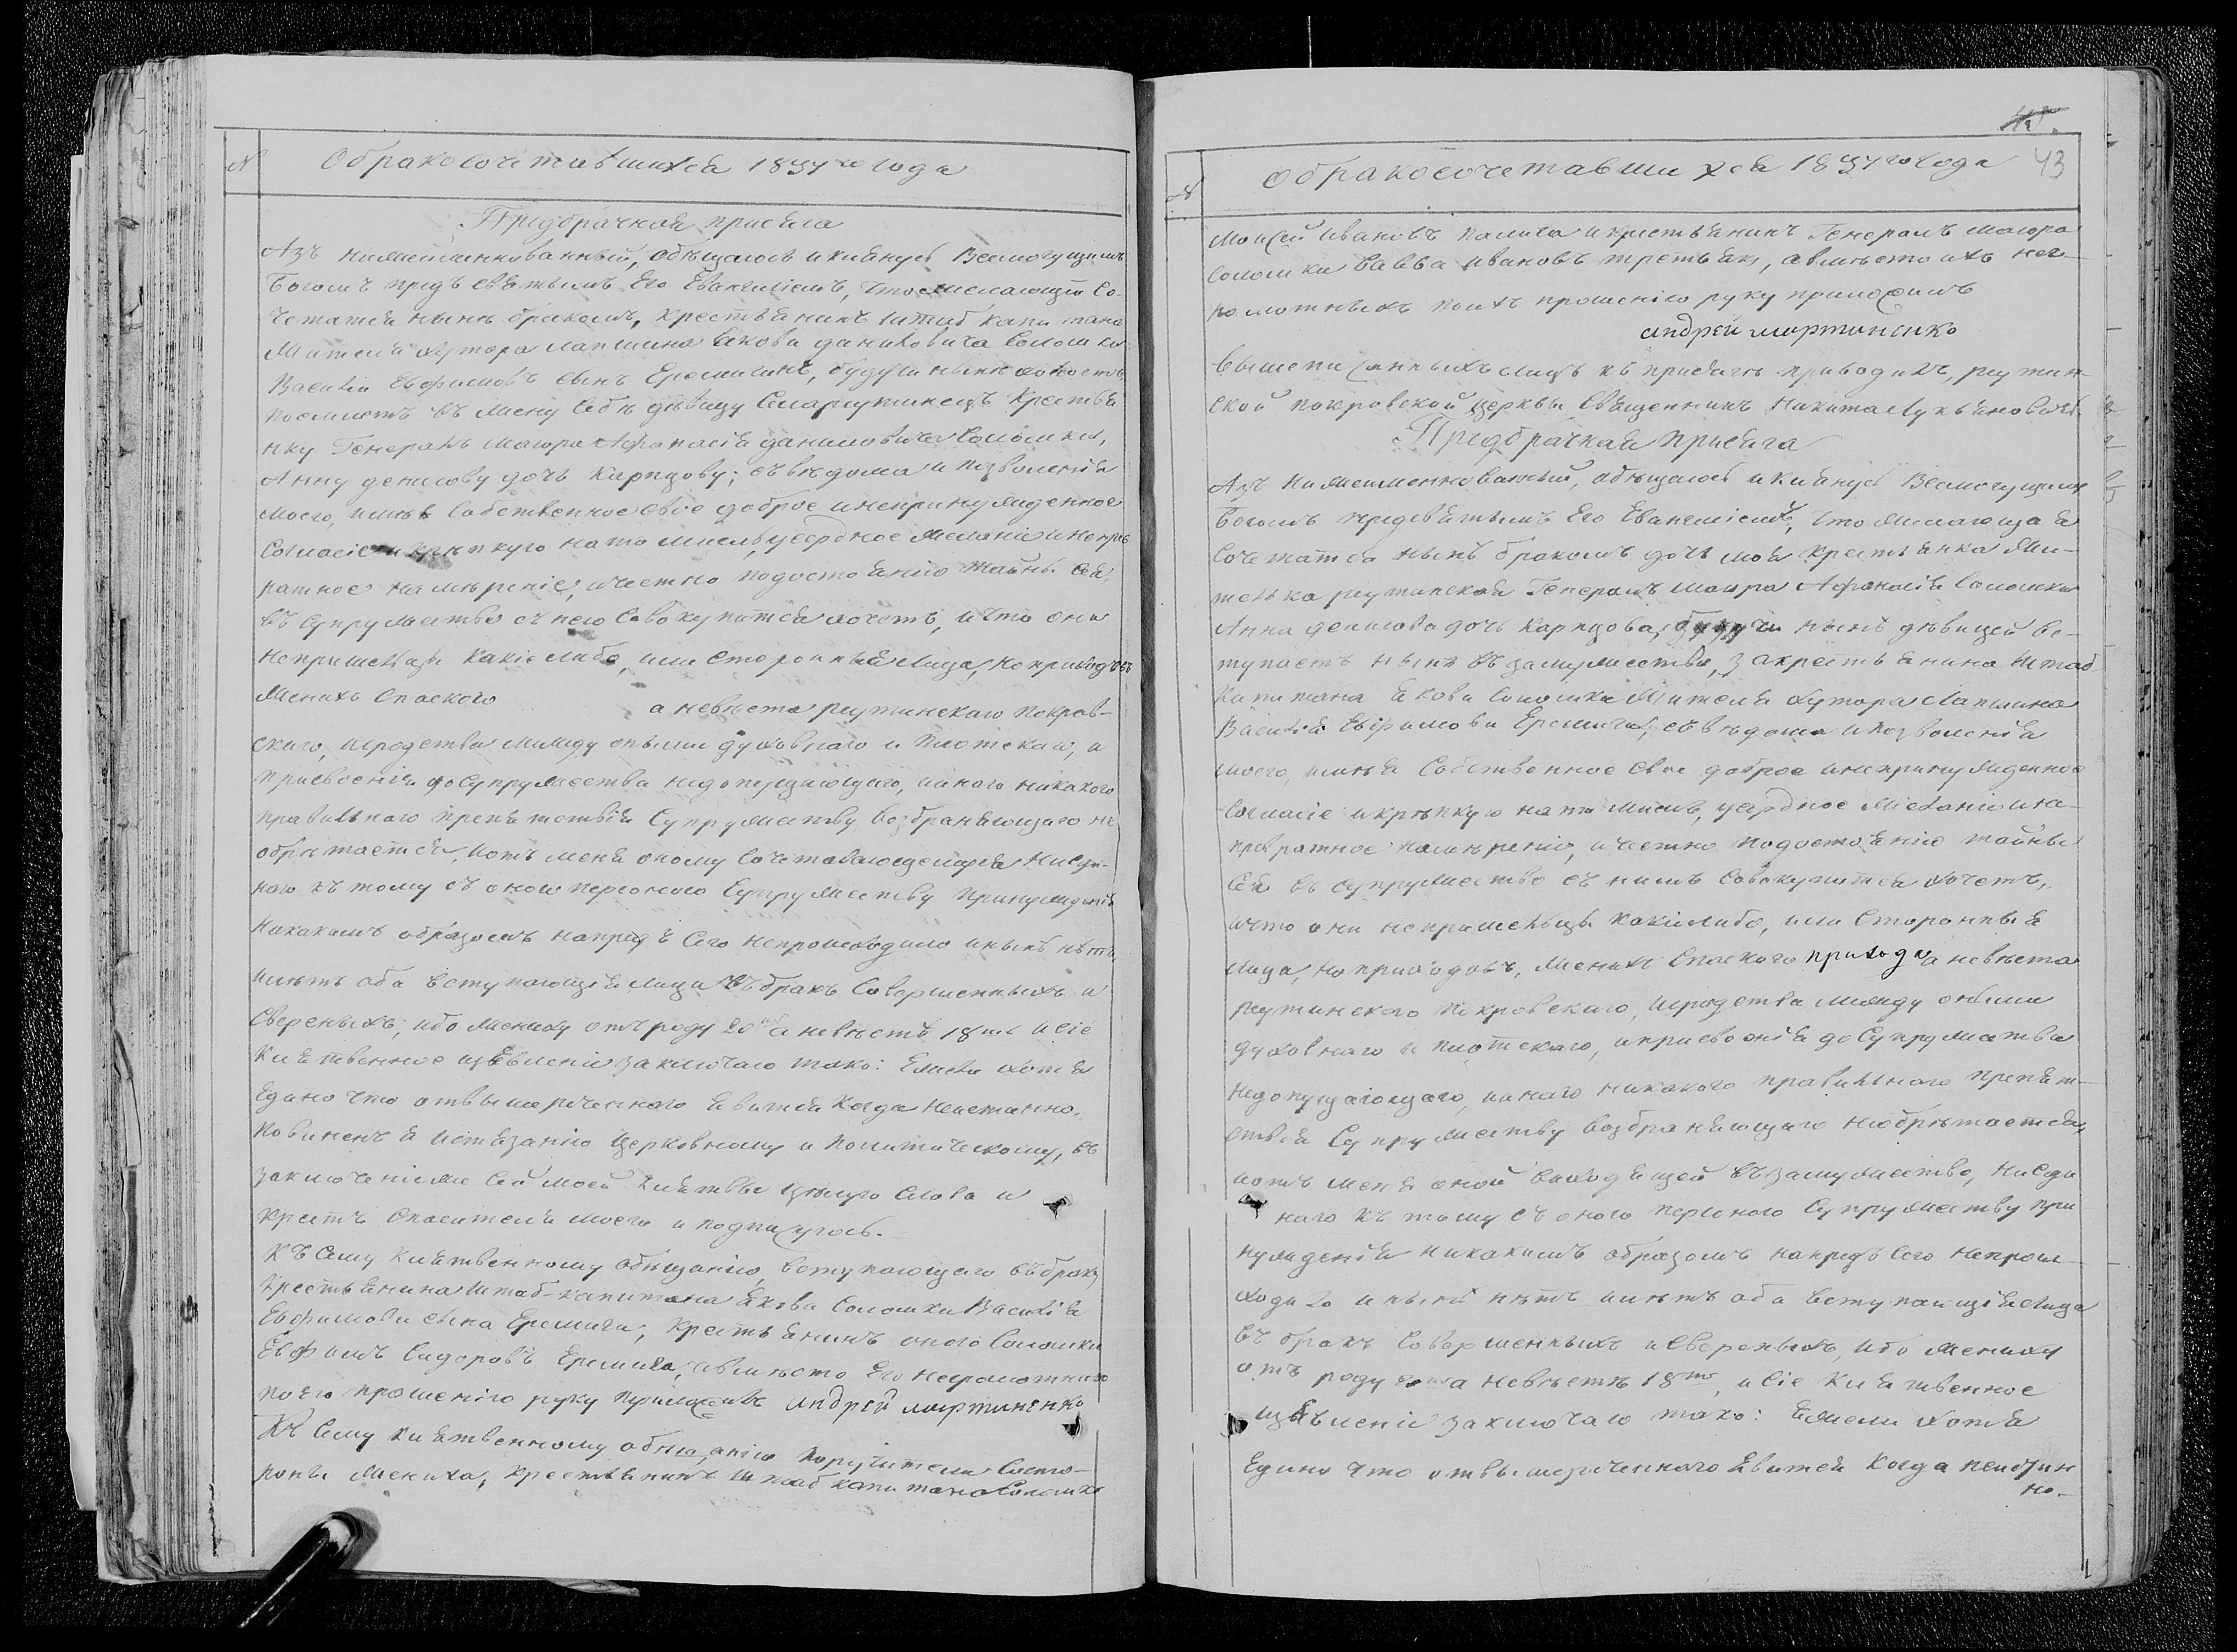 № О бракосочетавшихся 1831го года
Предбрачная присяга
Азъ нижейменнованный, обѣщаюсь и клянусь Всемогущимъ
Богомъ предъ святымъ Его Евангеліемъ, что желающій со-
четатся нынѣ бракомъ, крестьянинъ штаб капитана
Жителя хутора Лапшина Якова Даниловича Соломки
Василій Евфимовъ сынъ Еремичинъ, будучи нынѣ холостъ,
поемлетъ въ жену себѣ дѣвицу Крестья
нку Генералъ маіора Афанасія Даниловича Соломки,
Анну денисову дочь Карпцову; съ вѣдома и позволенія
моего, имѣя собственное свое доброе и непринужденное
согласіе и крѣпкую на то мысль, усердное желаніе и непре
ратное намѣреніе, и честно подостоянію тайны сея,
въ супружество с нею совокупитися хочетъ, и что они
непришельцы какіе либо, или сторонныя лица, но приходовъ
Женихъ Спаского а невѣста реутинскаго покров-
скаго, и родства между оными духовнаго и плотскаго, и
присвоенія до супружества недопущающаго, инаго никакого
правильнаго препятствія супружеству возбраняющаго не
обрѣтается, и отъ меня оному сочетавающемуся ниеди-
наго къ тому съ оною персоною супружеству принужденія
никакимъ образомъ напредъ сего непроисходило и нынѣ нѣтъ,
имѣтъ оба вступающія лица въ бракъ совершенныхъ и
, ибо жениху отъ роду 20 а невѣстѣ 18ть и сіе
клятвенное изъявленіе заключаю тако: Ежели хотя
едино что отвышереченнаго явится когда неистинно,
повиненъ я истязанію церковному и политическому, въ
заключеніиже сей моей клятвы цѣлую слова и
крестъ Спасителя моего и подписуюсь.
Къ сему клятвенному обѣщанію, вступающаго въ бракъ
крестьянина штаб-капитана Якова Соломки Василія
Евфимова сына Еремичи, крестьянинъ оного Соломки
Евфимъ Сидоровъ Еремича, авмѣсто Его неграмотнаго
поего прошенію руку приложилъ Андрей Мартиненко
Къ сему клятвенному обѣщанію поручители состо-
роны жениха, крестьянинъ штаб капитана Соломки
43
№ О бракосочетавшихся 1831го года
Моисей Ивановъ Палича и крестьянинъ Генералъ маіора
Соломки Савва Ивановъ третьяк, авмѣсто ихъ нег-
рамотныхъ поихъ прошенію руку приложилъ
Андрей Мартиненко
Вышеписанныхъ лицъ къ присягѣ приводилъ, реутин-
ской покровской церквы Священникъ Никита Лукьяновичъ
Предбрачная присяга
Азъ нижейменнованный, обѣщаюсь и клянусь Всемогущимъ
Богомъ предсвятымъ Его Евангеліемъ, что желающая
сочетатся нынѣ бракомъ дочь моя крестьянка жи-
телька реутинская Генералъ маіора Афанасія Соломки
Анна денисова дочь Карпцова, будучи нынѣ дѣвицей вс-
тупаетъ нынѣ въ замужество, за крестьянина штаб
капитана Якова Соломки жителя хутора Лапшина
Василія Евфимова Еремичи, съ вѣдома и позволенія
моего, имѣя собственное свое доброе и непринужденное
согласіе и крѣпкую на то мысль, усердное желаніе и не-
превратное намѣреніе, и честно подостоянію тайны
сея въ супружество съ нимъ совокупитися хочетъ,
и что они непришельцы какіелибо, или сторонныя
лица, но приходовъ, Женихъ Спаского прихода а невѣста
реутинского покровскаго, и родства между оными
духовнаго и плотскаго, и присвоенія до супружества
недопущающаго, инаго никакого правильнаго препят-
ствія супружеству возбраняющаго необрѣтается,
и отъ меня оной выходящей въ замужество, ниеди
наго къ тому съ оною персоною супружеству при
нужденія никакимъ образомъ напредъ сего непрои-
сходило и нынѣ нѣтъ имѣтъ оба вступающія лица
въ бракъ совершенныхъ , ибо жениху
отъ роду 20 а невѣстѣ 18ть, и сіе клятвенное
изъявленіе заключаю тако: Ежели хотя
едино что отвышереченнаго явится когда неистин
но-